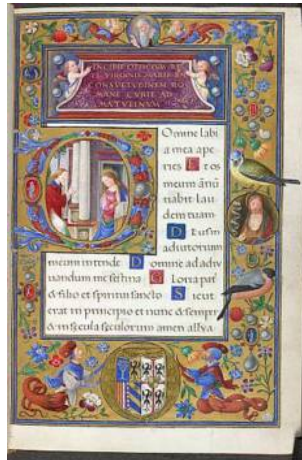 INCIPIT OFFICIUM BE
TE VIRGINIS MARIE SM
CONSVETVDINEM RO
MANE CVRIE AD
MATVTINVM
Domine labi
a mea ape
ries Et os
meum ānū
tiabit lau
dem tuam
Deus in
adiutorium
meum intende Domine ad adiu
uandum me festina Gloria pat̄
& filio et spiritui sancto Sicut
erat in principio et nunc & semper
& in secula seculorum amen all̄va